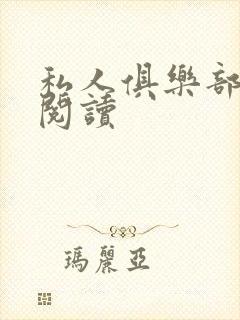 私人俱樂部
閱讀
瑪麗亞